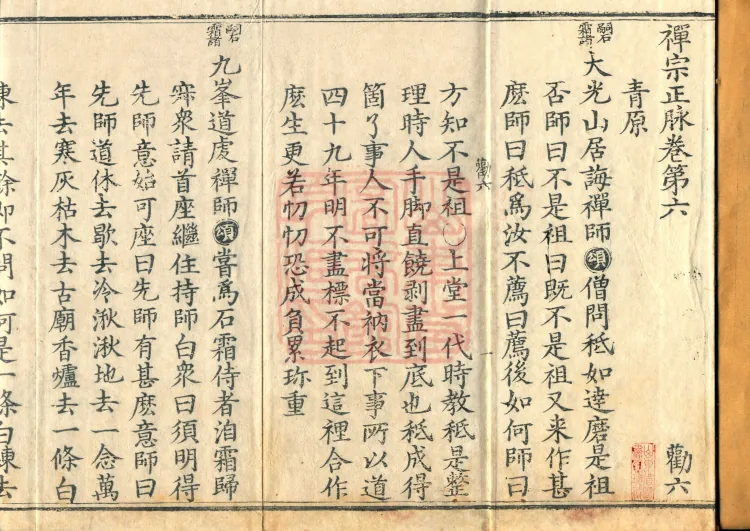 禪宗正脉卷第六 勸六
青原
嗣石霜諸 大光山居誨禪師頌僧問秪如達磨是祖
否師曰不是祖曰既不是祖又来作甚
麽師曰秪爲汝不薦曰薦後如何師曰
勸六 一
方知不是祖○上堂一代時教秪是整
理時人手脚直饒剥盡到底也秪成得
箇了事人不可將當衲衣下事所以道
四十九年明不盡標不起到這裡合作
麽生更若忉忉恐成負累珎重
嗣石霜諸 九峯道虔禪師頌嘗爲石霜侍者洎霜歸
寂衆請首座繼住持師白衆曰須明得
先師意始可座曰先師有甚麽意師曰
先師道休去歇去冷湫湫地去一念萬
年去寒灰枯木去古廟香爐去一條白
練去其餘即不問如何是一條白練去